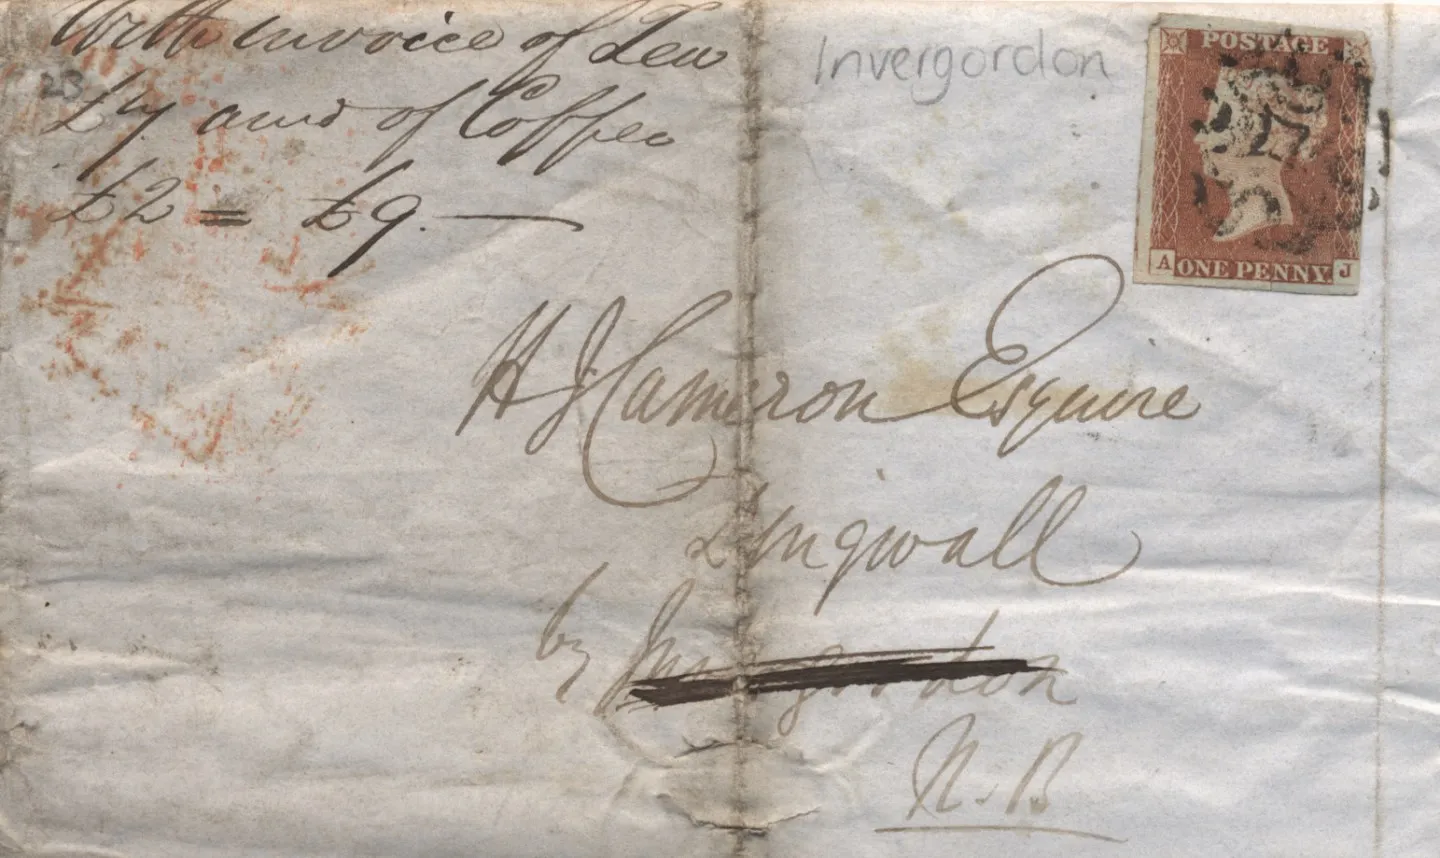 With invoice of Tea
£7 and of Coffee
£2 = £9.
28
Invergordon
POSTAGE
A ONE PENNY. J
H J Cameron Esquire
Dingwall
by Invergordon
N.B